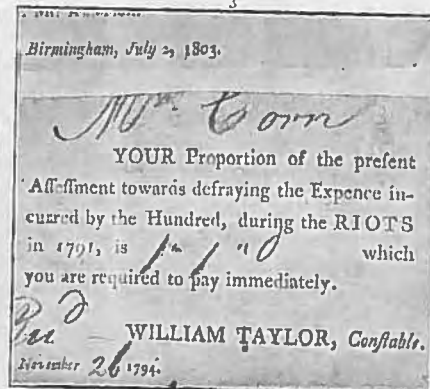 3
Birmingham, July 2, 1803.
Mr. Corn
YOUR Proportion of the preſent
Aſſeſſment towards defraying the Expence in-
curred by the Hundred, during the RIOTS
in 1791, is which
you are required to pay immediately.
WILLIAM TAYLOR, Conſtable.
November 26 1794.